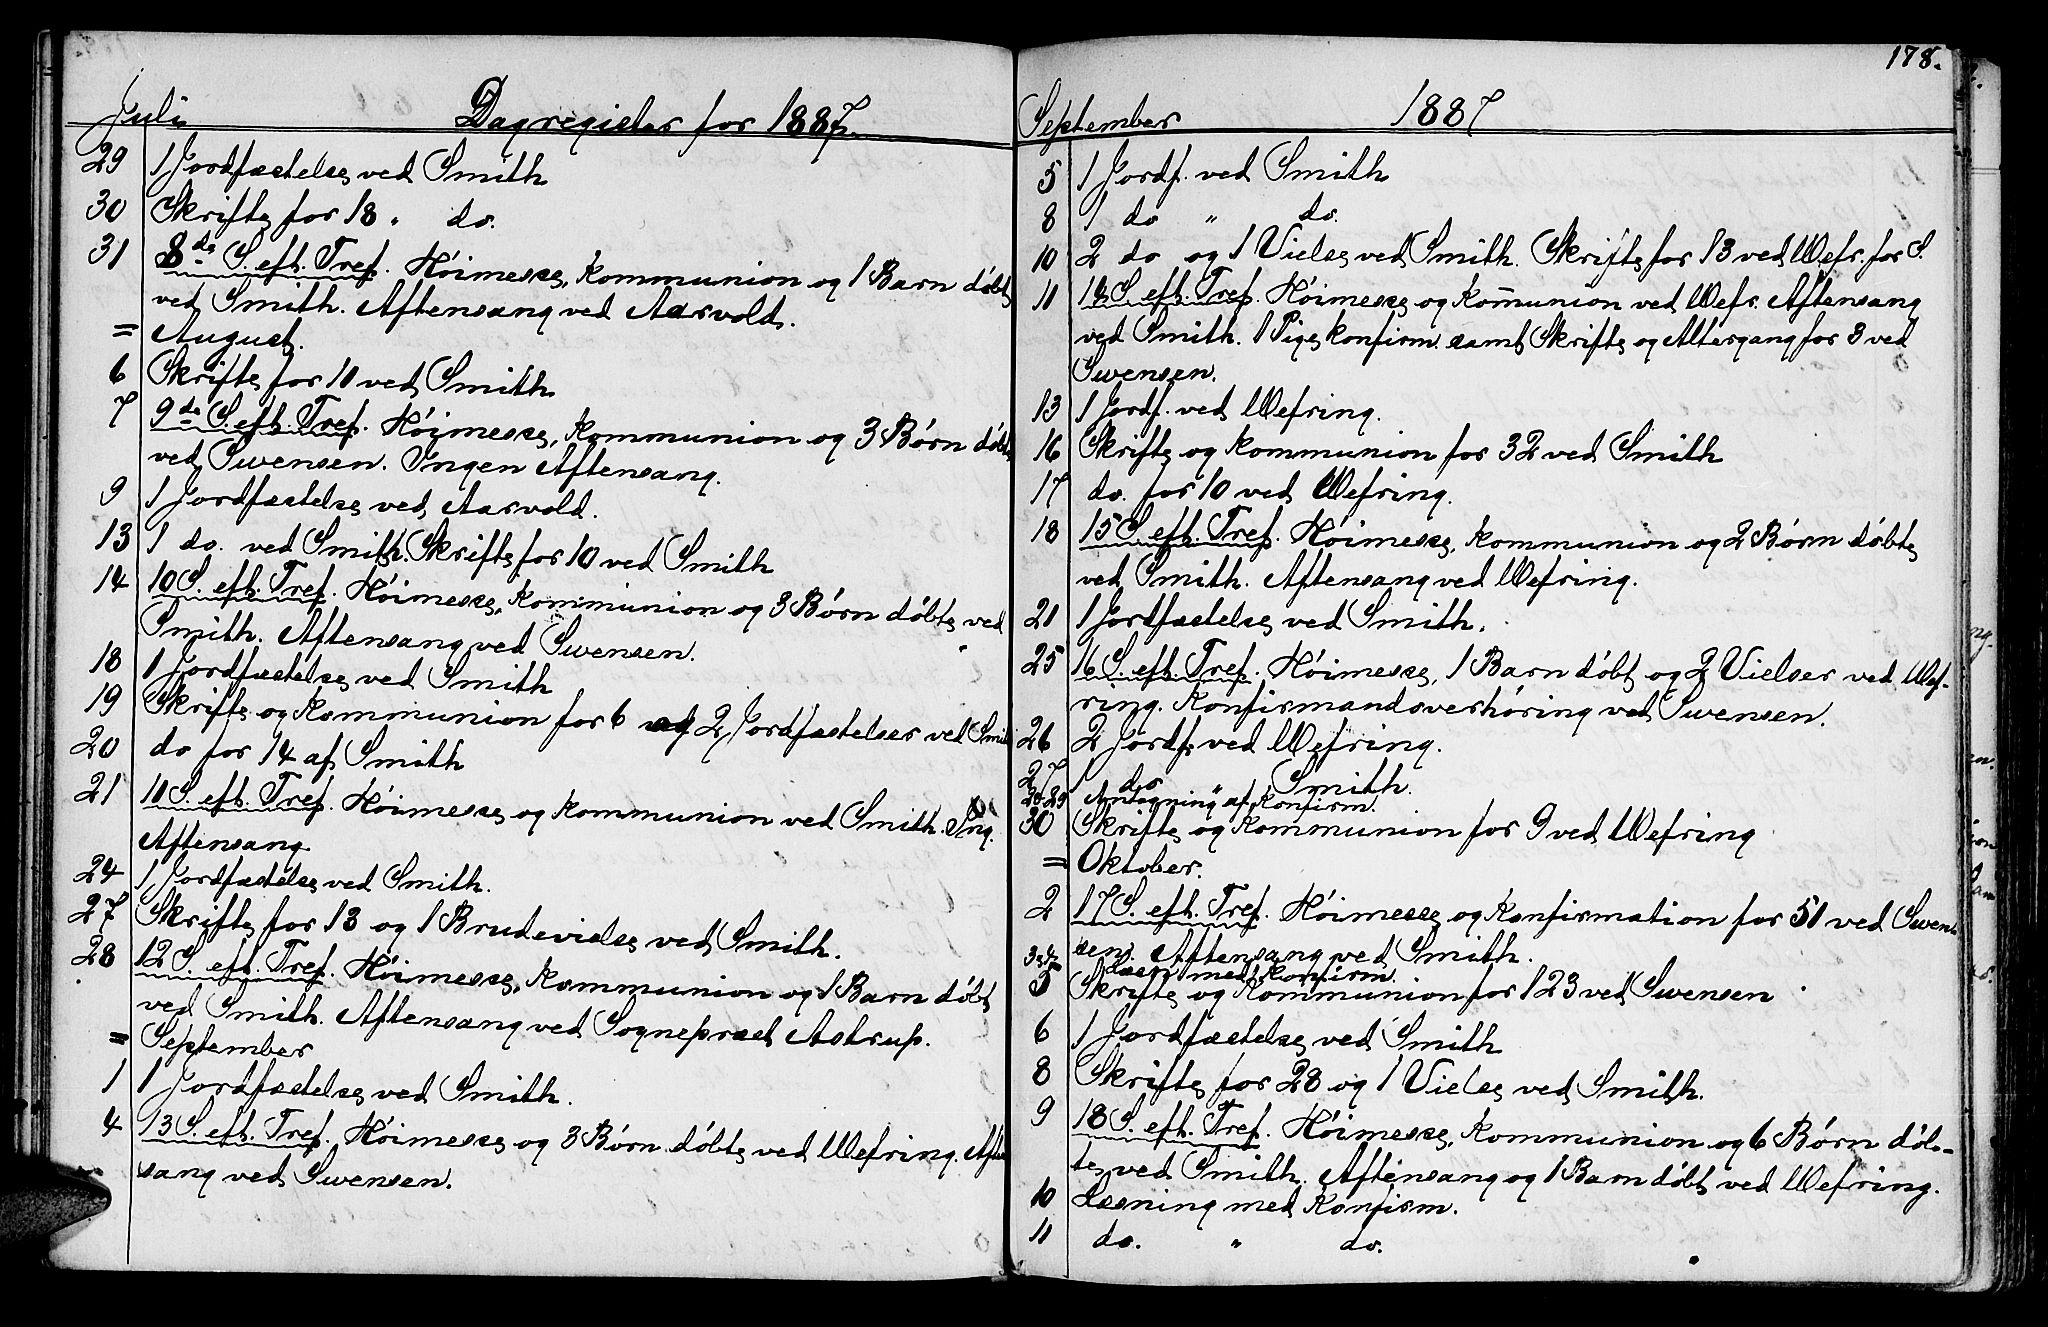 Juli Dagregister for 1887.
29 1 Jordfæstelse ved Smith
30 Skrifte for 18 " do.
31 8de S. eft. Tref. Höimesse, Kommunion og 1 Barn döbt
ved Smith. Aftensang ved Aarvold.
= August.
6 Skrifte for 10 ved Smith
7 9de S. eft. Tref. Höimesse, Kommunion og 3 Börn döbte
ved Swensen. Ingen Aftensang.
9 1 Jordfæstelse ved Aarvold.
13 1 do. ved Smith. Skrifte for 10 ved Smith
14 10 S. eft. Tref. Höimesse, Kommunion og 3 Börn döbte ved
Smith. Aftensang ved Swensen.
18 1 Jordfæstelse ved Smith
19 Skrifte og Kommunion for 6 og 2 Jordfæstelser ved Smith
20 do for 14 af Smith
21 11 S. eft. Tref. Höimesse og Kommunion ved Smith. Ing.
Aftensang.
24 1 Jordfæstelse ved Smith.
27 Skrifte for 13 og 1 Brudevielse ved Smith.
28 12 S. eft. Tref. Höimesse, Kommunion og 1 Barn döbt
ved Smith. Aftensang ved Sognepræst Astrup.
= September
1 1 Jordfæstelse ved Smith.
4 13 S. eft. Tref. Höimesse og 3 Börn döbte ved Wefring. Aften
sang ved Swensen.
178.
September 1887
5 1 Jordf. ved Smith
8 1 do " do.
10 2 do og 1 Vielse ved Smith. Skrifte for 13 ved Wefr. for S.
11 14 S. eft. Tref. Höimesse og Kom̄union ved Wefr. Aftensang
ved Smith. 1 Pige konfirm. samt Skrifte og Altergang for 3 ved
Swensen.
13 1 Jordf. ved Wefring.
16 Skrifte og Kommunion for 32 ved Smith
17 do. for 10 ved Wefring.
18 15 S. eft. Tref. Höimesse, Kommunion og 2 Börn döbte
ved Smith. Aftensang ved Wefring.
21 1 Jordfæstelse ved Smith.
25 16 S. eft. Tref. Höimesse, 1 Barn döbt og 2 Vielser ved Wef-
ring. Konfirmandoverhöring ved Swensen.
26 2 Jordf. ved Wefring.
27 1 do " Smith.
28-29 Antegning af Konfirm.
30 Skrifte og Kommunion for 9 ved Wefring
= Oktober.
2 17 S. eft. Tref. Höimesse og Konfirmation for 51 ved Swen
sen. Aftensang ved Smith.
Læsn med Konfirm.
5 Skrifte og Kommunion for 123 ved Swensen
6 1 Jordfæstelse ved Smith
8 Skrifte for 28 og 1 Vielse ved Smith.
9 18 S. eft. Tref. Höimesse, Kommunion og 6 Börn döb-
te ved Smith. Aftensang og 1 Barn döbt ved Wefring.
10 Læsning med Konfirm.
11 do. " do.